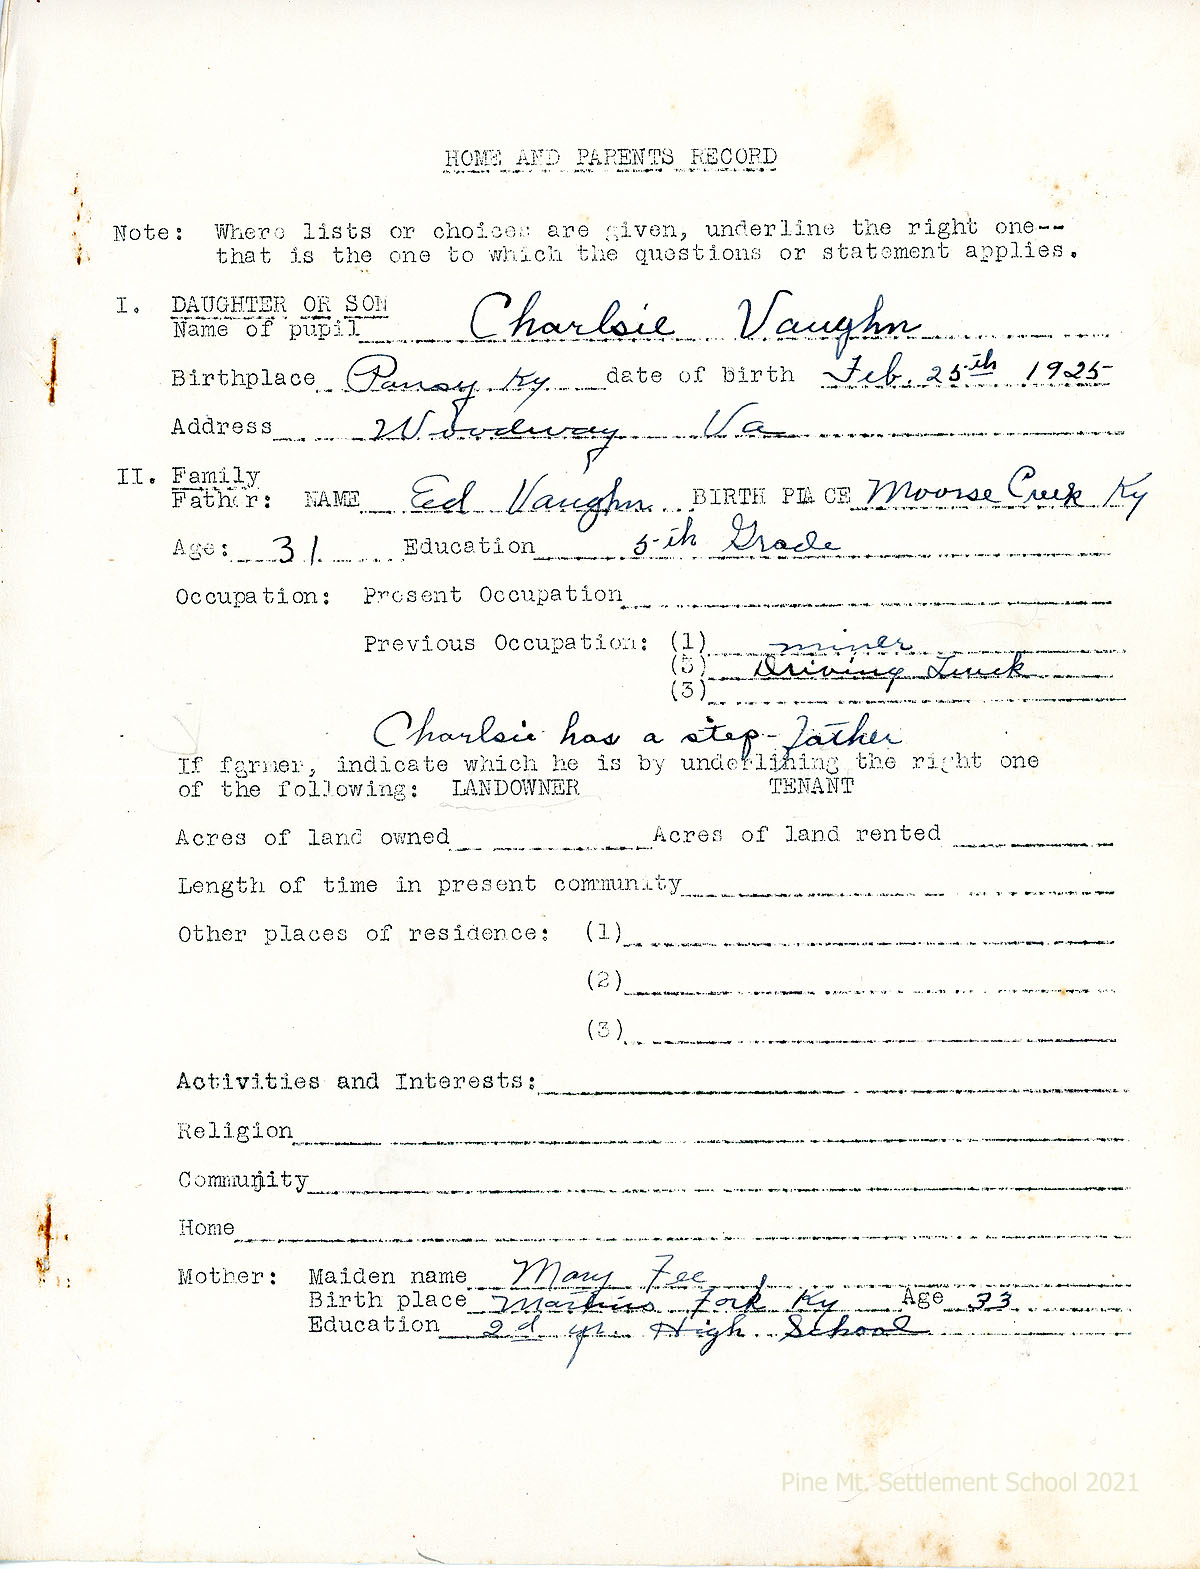 HOME AND PARENTS RECORD
Note: Where lists or choices are given, underline the right one--
that is the one to which the questions or statement applies.
I. DAUGHTER OR SON
Name of pupil Charlsie Vaughn
Birthplace Pansy Ky date of birth Feb. 25th 1925
Address Woodway Va
II. Family
Father: NAME Ed Vaughn BIRTH PLACE Moorse Creek Ky
Age: 31 Education 5th Grade
Occupation: Present Occupation
Previous Occupation: (1) miner
(5) Driving Truck
(3)
Charlsie has a step-father
If farmer, indicate which he is by underlining the right one
of the following: LANDOWNER TENANT
Acres of land owned Acres of land rented
Length of time in present community
Other places of residence: (1)
(2)
(3)
Activities and Interests:
Religion
Community
Home
Mother: Maiden name Mary Fee
Birth place Martins Fork Ky Age 33
Education 2d yr. High School
Pine Mt. Settlement School 2021